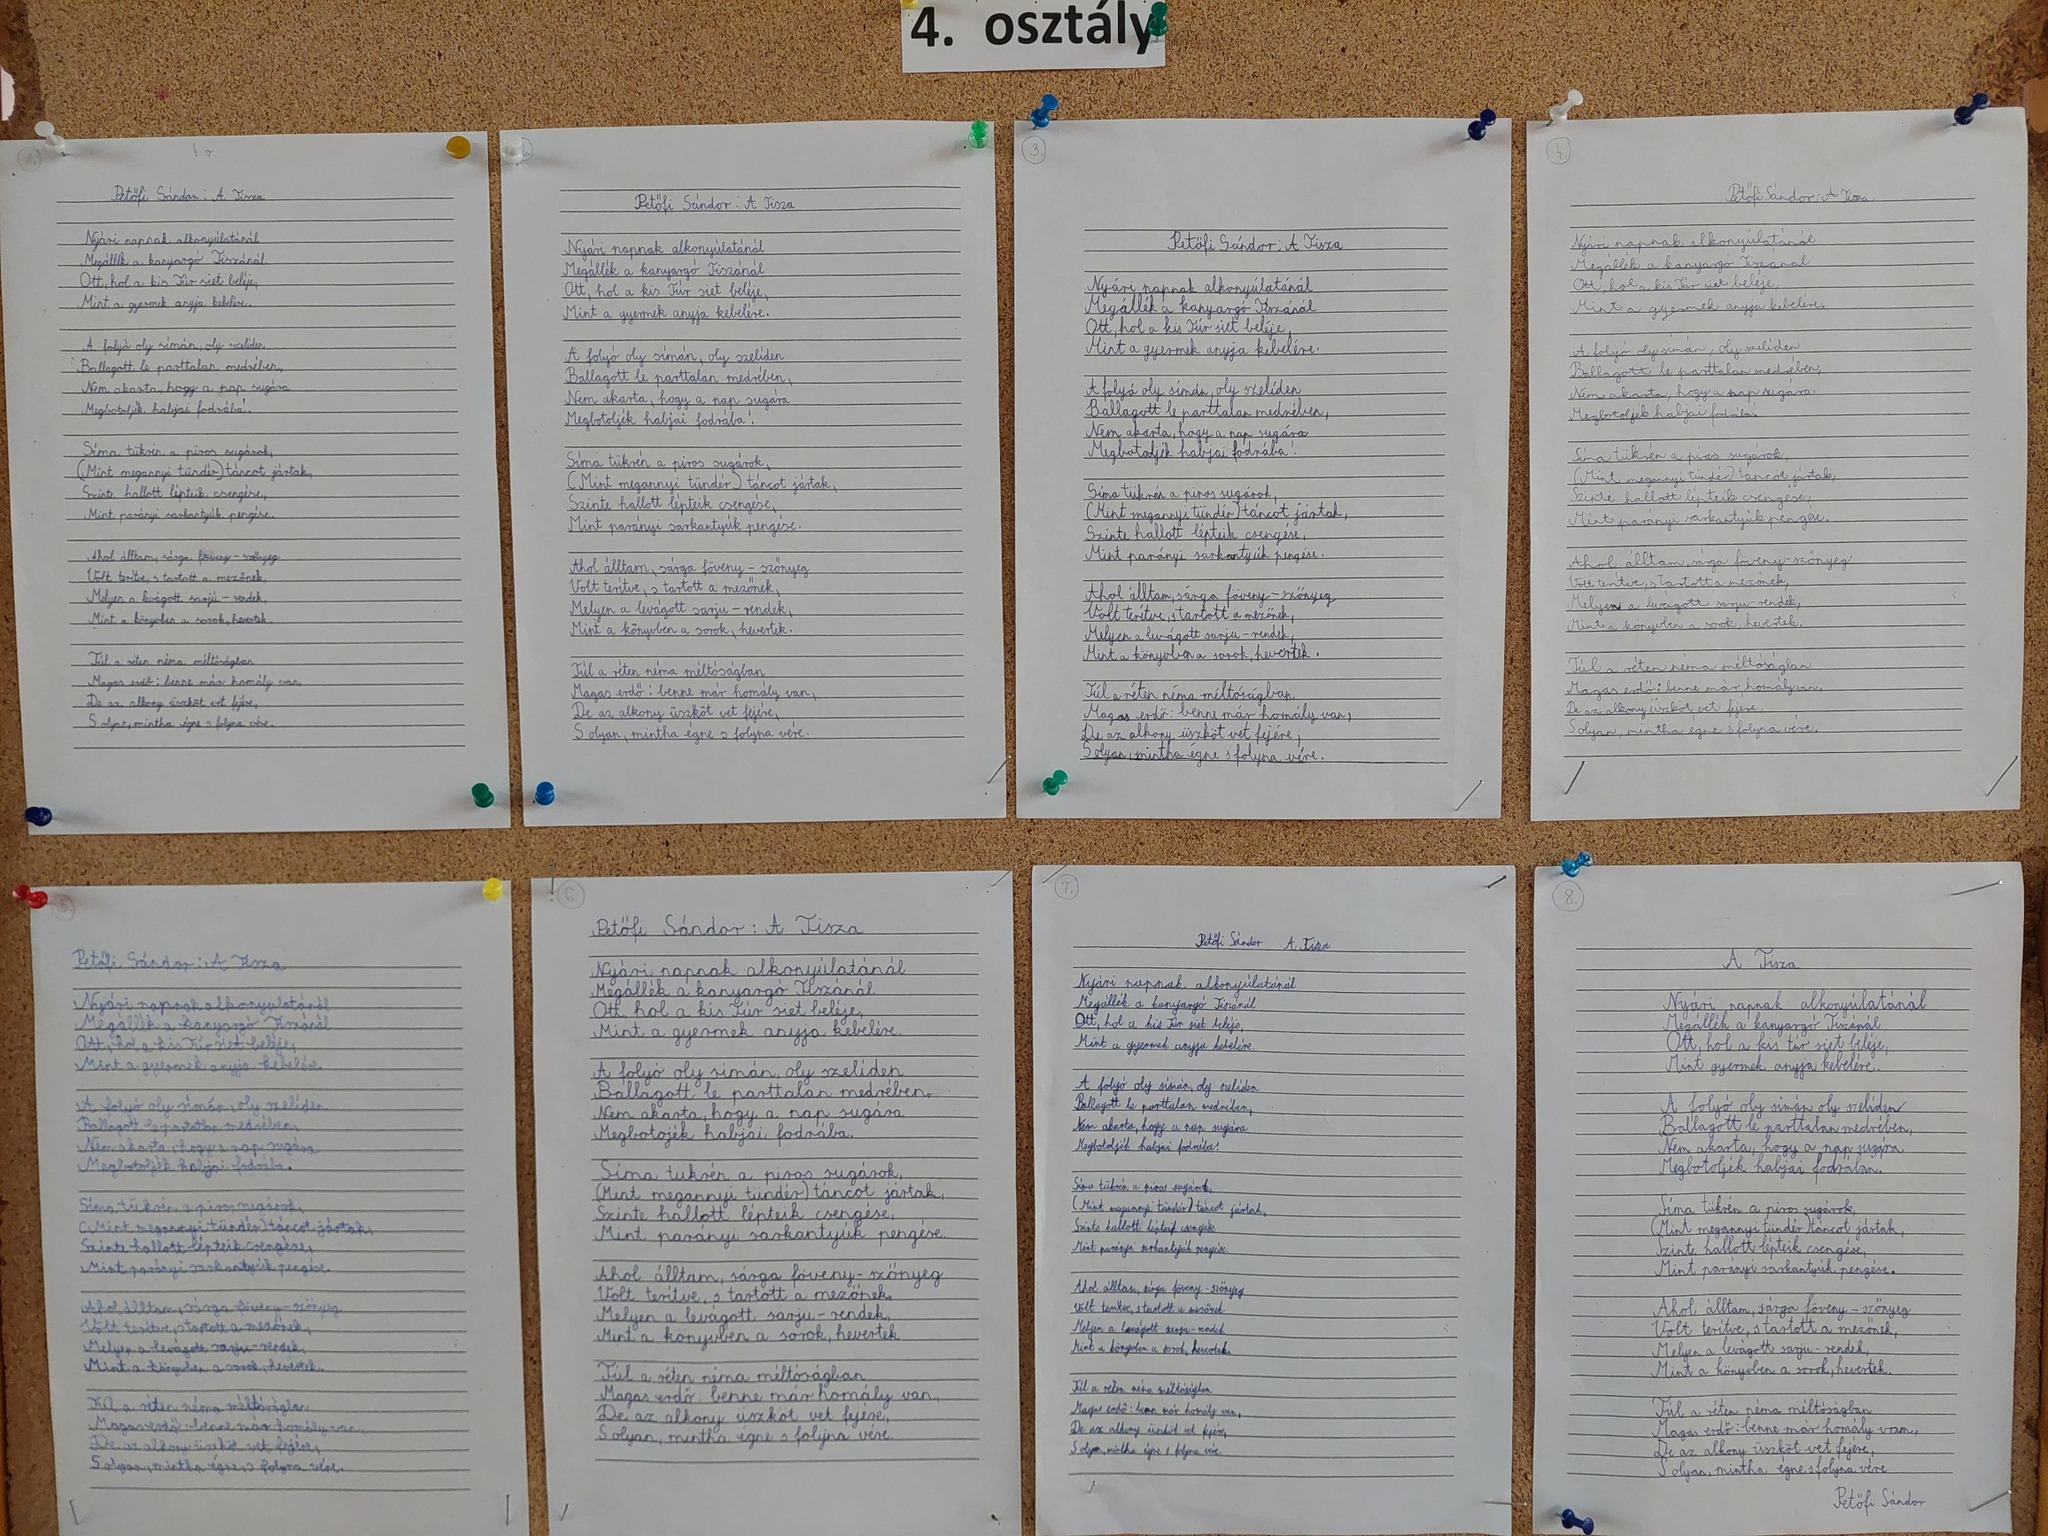 4. osztály
1.
4 o.
Petőfi Sándor: A Tisza
Nyári napnak alkonyúlatánál
Megállék a kanyargó Tiszánál
Ott, hol a kis Túr siet beléje,
Mint a gyermek anyja kebelére.
A folyó oly simán, oly szelíden
Ballagott le parttalan medrében,
Nem akarta, hogy a nap sugára
Megbotoljék habjai fodrába!.
Síma tükrén a piros sugárok,
(Mint megannyi tündér) táncot jártak,
Szinte hallott lépteik csengése,
Mint parányi sarkantyúk pengése.
Ahol álltam, sárga föveny-szőnyeg
Volt terítve, s tartott a mezőnek,
Melyen a levágott sarju-rendek,
Mint a könyvben a sorok, hevertek.
Túl a réten néma méltóságban
Magas erdő: benne már homály van,
De az alkony üszköt vet fejére,
S olyan, mintha égne s folyna vére.
Petőfi Sándor: A Tisza
Nyári napnak alkonyúlatánál
Megállék a kanyargó Tiszánál
Ott, hol a kis Túr siet beléje,
Mint a gyermek anyja kebelére.
A folyó oly símán, oly szelíden
Ballagott le parttalan medrében,
Nem akarta, hogy a nap sugára
Megbotoljék habjai fodrába!
Síma tükrén a piros sugárok,
(Mint megannyi tündér) táncot jártak,
Szinte hallott lépteik csengése,
Mint parányi sarkantyúk pengése.
Ahol álltam, sárga föveny-szőnyeg
Volt terítve, s tartott a mezőnek,
Melyen a levágott sarju-rendek,
Mint a könyvben a sorok, hevertek.
Túl a réten néma méltóságban
Magas erdő: benne már homály van,
De az alkony üszköt vet fejére,
S olyan, mintha égne s folyna vére.
3.
Petőfi Sándor: A Tisza
Nyári napnak alkonyúlatánál
Megállék a kanyargó Tiszánál
Ott, hol a kis Túr siet beléje,
Mint a gyermek anyja kebelére.
A folyó oly símán, oly szelíden
Ballagott le parttalan medrében,
Nem akarta, hogy a nap sugára
Megbotoljék habjai fodrába!
Síma tükrén a piros sugárok,
(Mint megannyi tündér) táncot jártak,
Szinte hallott lépteik csengése,
Mint parányi sarkantyúk pengése.
Ahol álltam, sárga föveny-szőnyeg
Volt terítve, s tartott a mezőnek,
Melyen a levágott sarju-rendek,
Mint a könyvben a sorok, hevertek.
Túl a réten néma méltóságban
Magas erdő: benne már homály van,
De az alkony üszköt vet fejére,
S olyan, mintha égne s folyna vére.
4.
Petőfi Sándor: A Tisza
Nyári napnak alkonyúlatánál
Megállék a kanyargó Tiszánál
Ott, hol a kis Túr siet beléje,
Mint a gyermek anyja kebelére.
A folyó oly simán, oly szeliden
Ballagott le parttalan medrében,
Nem akarta, hogy a nap sugára
Megbotoljék habjai
Síma tükrén a piros sugárok,
(Mint megannyi tündér) táncot jártak,
Szinte hallott lépteik csengése,
Mint parányi sarkantyúk pengése.
Ahol álltam, sárga föveny-szőnyeg
Volt terítve, s tartott a mezőnek,
Melyen a levágott sarju-rendek,
Mint a könyvben a sorok, hevertek.
Túl a réten néma méltóságban
Magas erdő: benne már homály van,
De az alkony üszköt vet fejére,
S olyan, mintha égne s folyna vére.
5.
Petőfi Sándor: A Tisza
Nyári napnak alkonyulatánál
Megállék a kanyargó Tiszánál
Ott, hol a kis Túr siet beléje,
Mint a gyermek anyja kebelére.
A folyó oly símán, oly szelíden
Ballagott le medrében,
Nem akarta, hogy a nap sugára
Megbotoljék habjai fodrába.
Síma tükrén a piros sugárok,
(Mint megannyi tündér) táncot jártak,
Szinte hallott lépteik csengése,
Mint parányi sarkantyúk pengése.
Ahol álltam, sárga föveny-szőnyeg
Volt terítve, s tartott a mezőnek,
Melyen a levágott sarju-rendek,
Mint a könyvben a sorok, hevertek.
Túl a réten néma méltóságban
Magas erdő: benne már homály van,
De az alkony üszköt vet fejére,
S olyan, mintha égne, s folyna vére.
6.
Petőfi Sándor: A Tisza
Nyári napnak alkonyúlatánál
Megállék a kanyargó Tiszánál
Ott hol a kis Túr siet beléje,
Mint a gyermek anyja kebelére.
A folyó oly simán, oly szelíden
Ballagott le parttalan medrében,
Nem akarta, hogy a nap sugára
Megbotojék habjai fodrába.
Síma tukrén a piros sugárok,
(Mint megannyi tündér) táncot jártak,
Szinte hallott lépteik csengése,
Mint parányi sarkantyúk pengése.
Ahol álltam, sárga föveny-szőnyeg
Volt terítve, s tartott a mezőnek,
Melyen a levágott sarju-rendek,
Mint a könyvben a sorok, hevertek
Túl a réten néma méltóságban
Magas erdő: benne már homály van,
De az alkony üszköt vet fejére,
S olyan, mintha égne s folyna vére.
7.
Petőfi Sándor A Tisza
Nyári napnak alkonyúlatánál
Megállék a kanyargó Tiszánál
Ott, hol a kis Túr siet beléje,
Mint a gyermek anyja kebelére.
A folyó oly simán, oly szelíden
Ballagott le parttalan medrében,
Nem akarta, hogy a nap sugára
Megbotoljék habjai fodrába!
Síma tükrén a piros sugárok,
(Mint megannyi tündér) táncot jártak,
Szinte hallott lépteik
Mint parányi sarkantyúk
Ahol álltam, sárga föveny-szőnyeg
Volt terítve, s tartott a mezőnek
Melyen a levágott sarju-rendek
Mint a könyvben a sorok, hevertek.
Túl a réten néma méltóságban
Magas erdő: benn már homály van,
De az alkony üszköt vet fejére,
S olyan, mintha égne s folyna vére.
8.
A Tisza
Nyári napnak alkonyúlatánál
Megállék a kanyargó Tiszánál
Ott, hol a kis túr siet beléje,
Mint gyermek anyja kebelére.
A folyó oly simán oly szelíden
Ballagott le parttalan medrében,
Nem akarta, hogy a nap sugára
Megbotoljék habjai fodrában.
Síma tükrén a piros sugárok,
(Mint megannyi tündér) táncot jártak,
Szinte hallott lépteik csengése,
Mint parányi sarkantyúk pengése.
Ahol álltam, sárga föveny-szőnyeg
Volt terítve, s tartott a mezőnek,
Melyen a levágott sarju-rendek,
Mint a könyvben a sorok, hevertek.
Túl a réten néma méltóságban
Magas erdő: benne már homály van,
De az alkony üszköt vet fejére,
S olyan, mintha égne s folyna vére
Petőfi Sándor